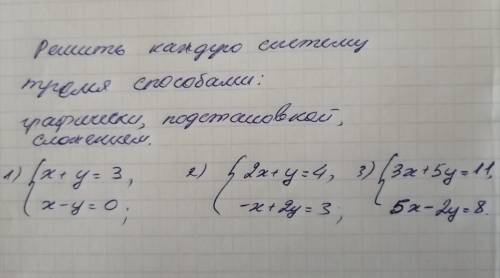 Решить каждую систему
тремя способами:
графически, подстановкой,
сложением.
1) { x + y = 3, 2) { 2x + y = 4, 3) { 3x + 5y = 11,
x - y = 0; -x + 2y = 3; 5x - 2y = 8.